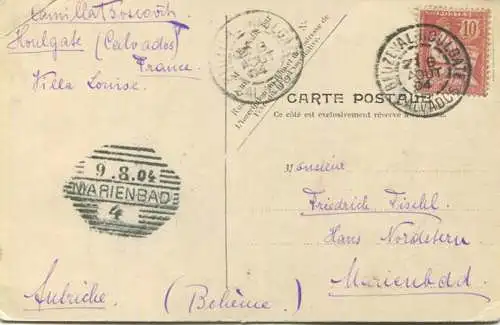 Camilla Toscovich
Houlgate (Calvados)
France
Villa Louise.
BEUZEVAL-HOULGATE
CALVADOS
10
BEUZEVAL-HOULGATE
AOUT
04
CALVADOS
CARTE POSTALE
Ce côté est exclusivement réservé à
9.8.04
MARIENBAD
4
Monsieur
Friedrich Fischl
Hans Nordstern
Marienbad
Autriche (Bohême)